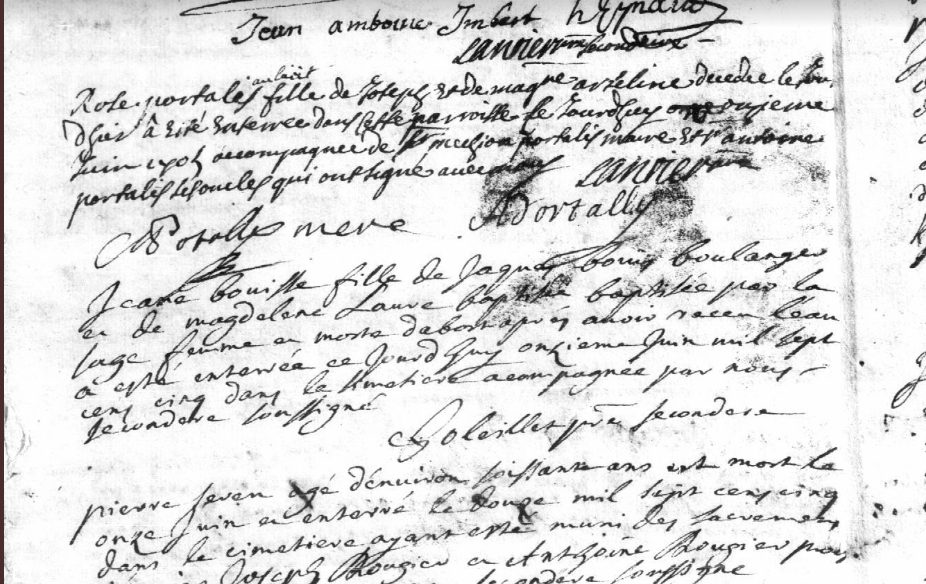 Jean amboise Imbert
secondere
au lait
Rose portalis fille de Joseph et de marg arzeline decedee le
d'huy à esté enterree dans cette parroisse le Jourdhuy onzieme
Juin accompagnee de portalis maire et antoine
portalis ses oncles qui ont signé avec moy
Portallis mere APortallis
Jeane bouisse fille de Jaques bouis boulanger
et de magdelene Laure baptisée par la
sage femme et morte dabort apres avoir receu l'eau
a esté enterréa ce Jourdhuy onzieme Juin mil sept
cens cinq dans le simetiere acompagnée par nous
secondere soussigné
Soleillet ptre secondere
pierre seren agé d'environ soissante ans est mort le
onze Juin et enterré le douze mil sept cens cinq
dans le cimetiere ayant esté muni des sacremens
Joseph Rougier et Anthoine Rougier
secondere soussigné